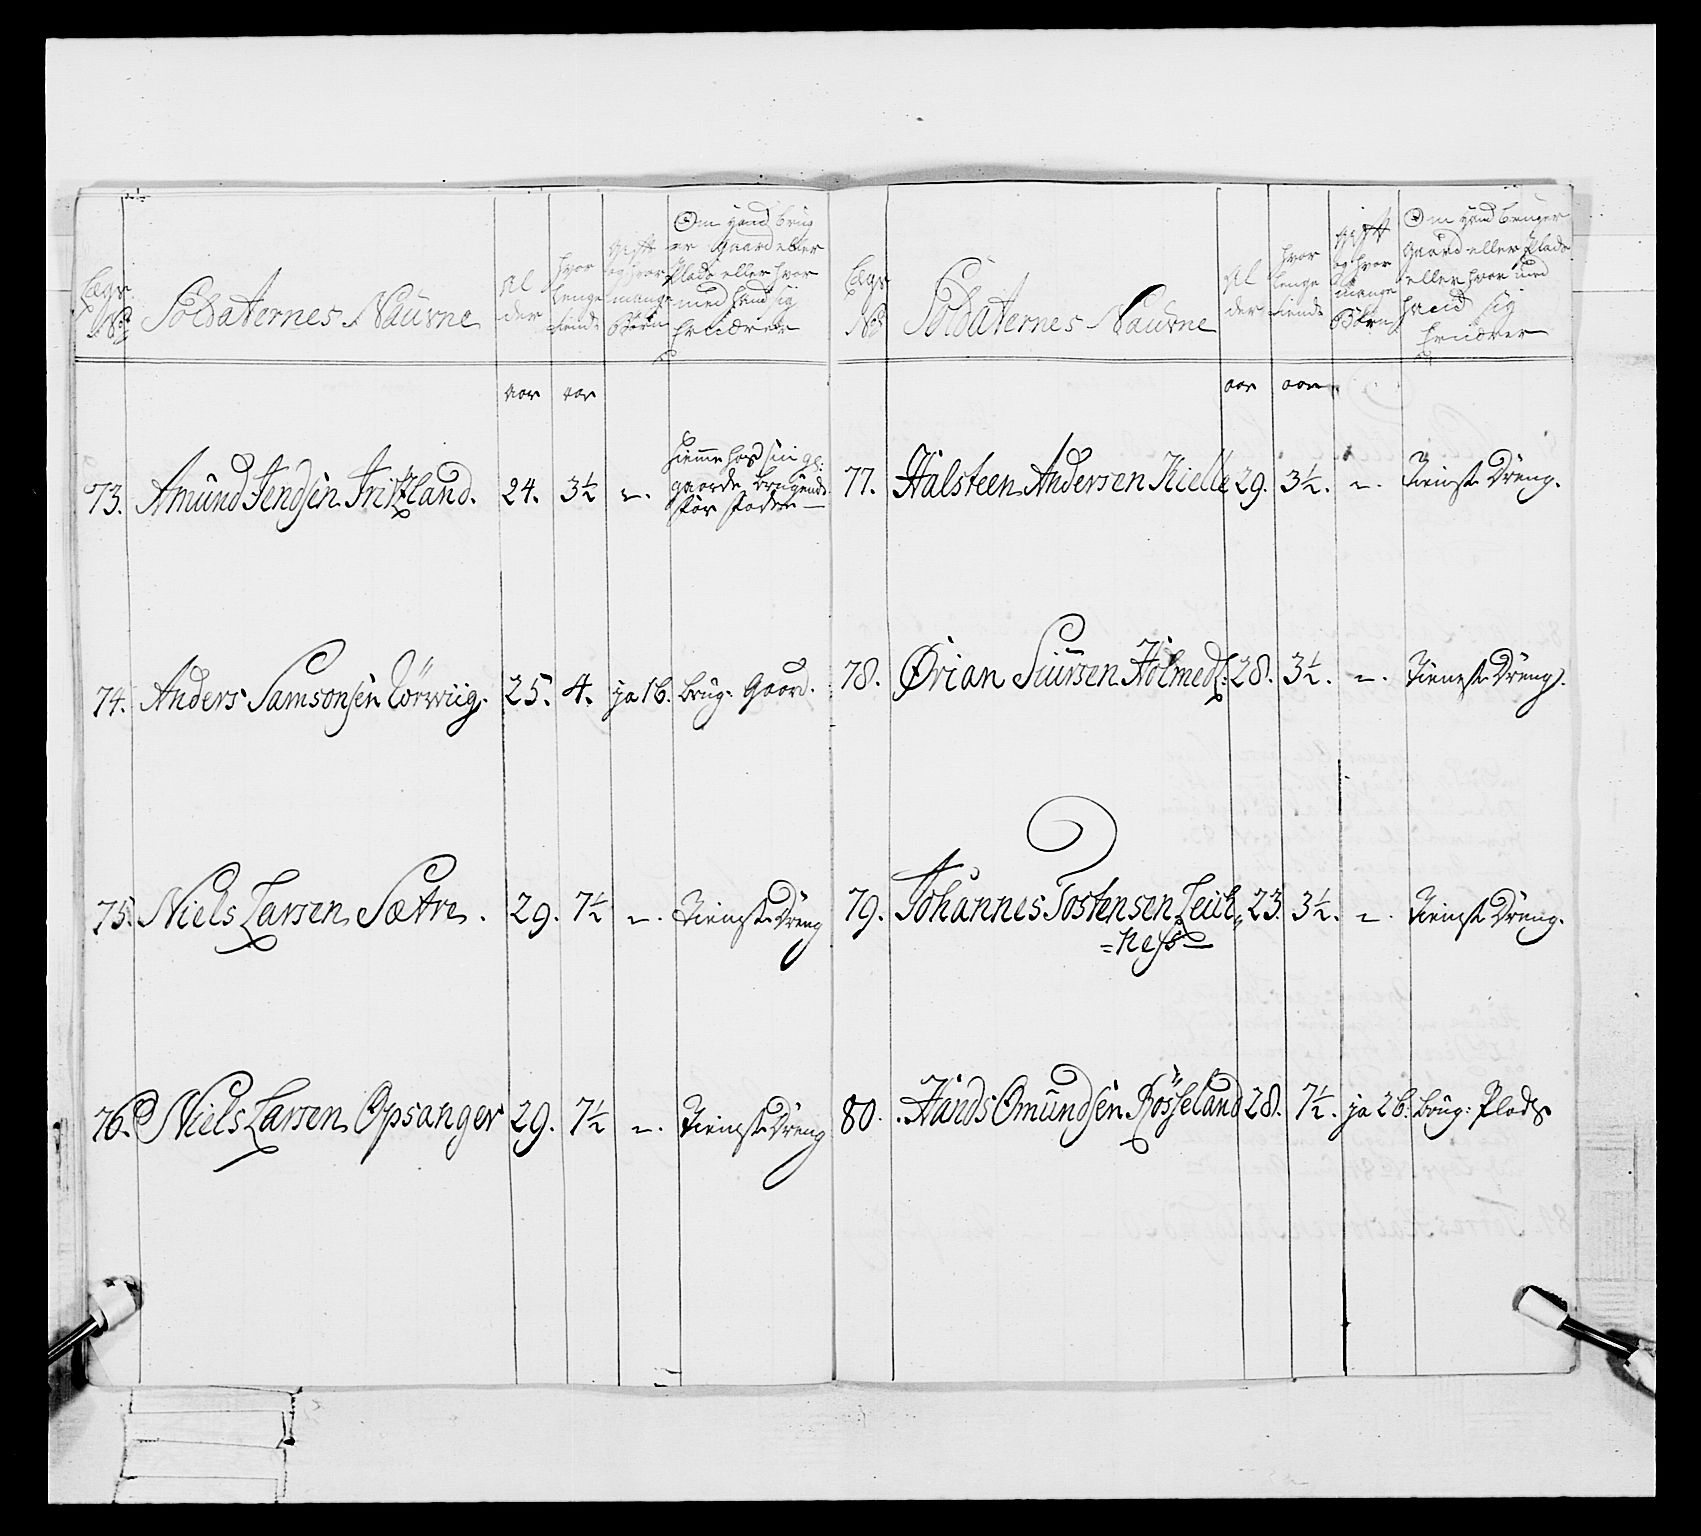 Lægs No
Soldaternes Naufne
Al der
hvor lenge tient
gift og hvor mange Börn
Om hand brug er gaard eller Plads eller hvor med hand sig Ernærer
aar aar
73. Amund Jendsen Fritzland. 24. 3½ n. hiemme hos sin
74. Anders Samsonsen Törwiig. 25. 4. ja 1 b. brug: Gaard.
75. Niels Larsen Sætre. 29. 7½ n. Tienest Dreng
76. Niels Larsen Opsanger 29. 7½ n. Tienest Dreng
Lægs No
Soldaternes Naufne
Al der
hvor lenge tient
gift og hvor mange Börn
Om hand bruger Gaard eller Plads eller hvor med hand sig Ernærer
aar aar
77. Halsteen Andersen Kielle 29. 3½. n. Tienest Dreng.
78. Ørian Siursen Holmed: 28. 3½. n. Tienest Dreng.
79. Johannes Tostensen 23. 3½. n. Tienest Dreng.
=ness
80. Hands Omundsen Rösseland 28. 7½. ja 2 b: brug: Plads